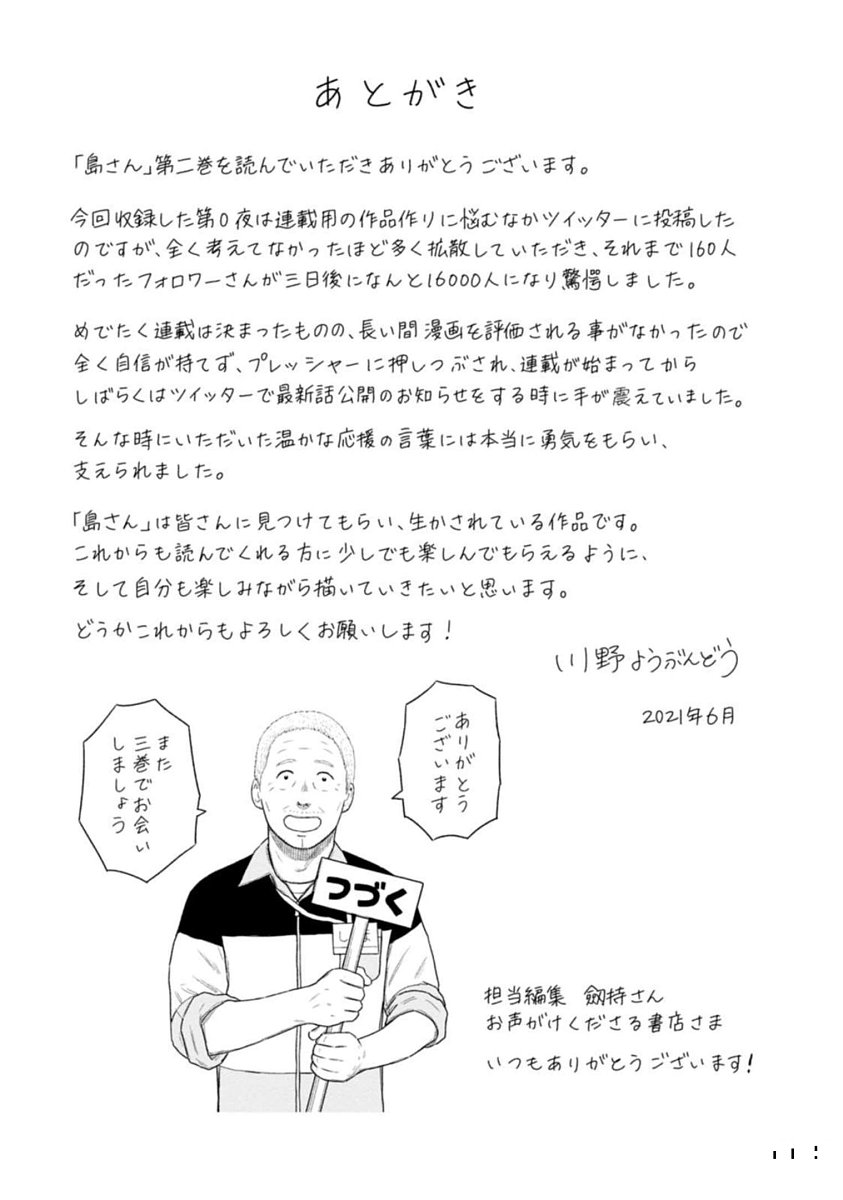 あとがき
「島さん」第二巻を読んでいただきありがとうございます。
今回収録した第0夜は連載用の作品作りに悩むなかツイッターに投稿した
のですが、全く考えてなかったほど多く拡散していただき、それまで160人
だったフォロワーさんが三日後になんと16000人になり驚愕しました。
めでたく連載は決まったものの、長い間漫画を評価される事がなかったので
全く自信が持てず、プレッシャーに押しつぶされ、連載が始まってから
しばらくはツイッターで最新話公開のお知らせをする時に手が震えていました。
そんな時にいただいた温かな応援の言葉には本当に勇気をもらい、
支えられました。
「島さん」は皆さんに見つけてもらい、生かされている作品です。
これからも読んでくれる方に少しでも楽しんでもらえるように、
そして自分も楽しみながら描いていきたいと思います。
どうかこれからもよろしくお願いします!
川野ようぶんどう
2021年6月
ありがとう
ございます
また
三巻でお会い
しましょう
つづく
担当編集 劔持さん
お声がけくださる書店さま
いつもありがとうございます!